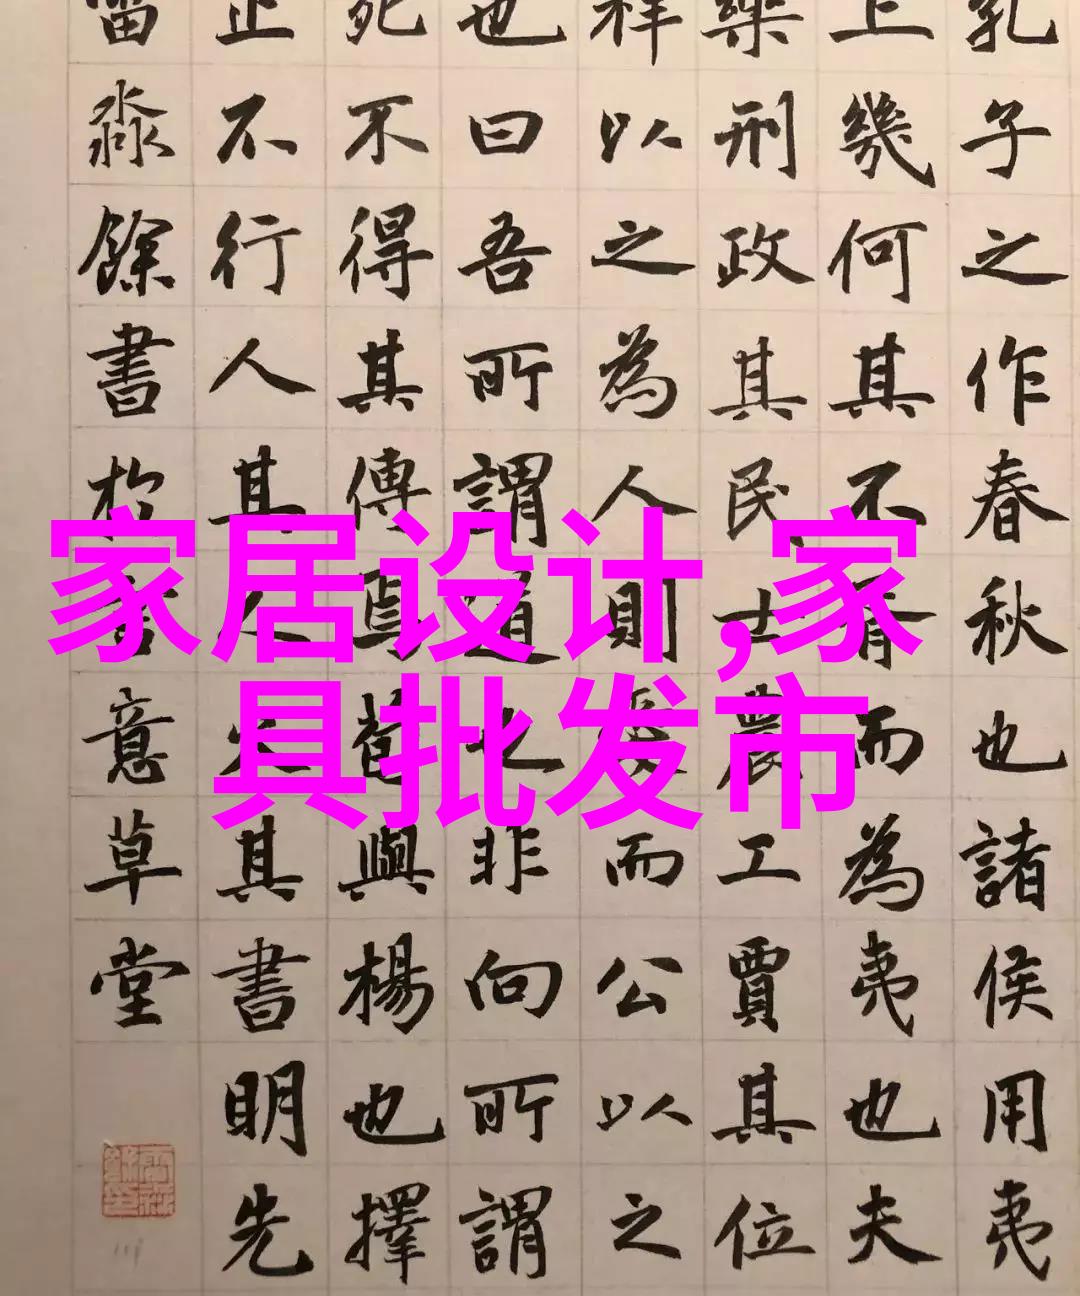 家居设计,家
具批发市
孔子之作春秋也諸侯用夷
上幾何其不胥而為夷也夫
樂刑政其民士農工賈其位
祥以之為人則愛而公以之
也曰吾所謂道也非向所謂
死不得其傳焉荀與楊也擇
止不行人其人火其書明先
淼餘書於意草堂